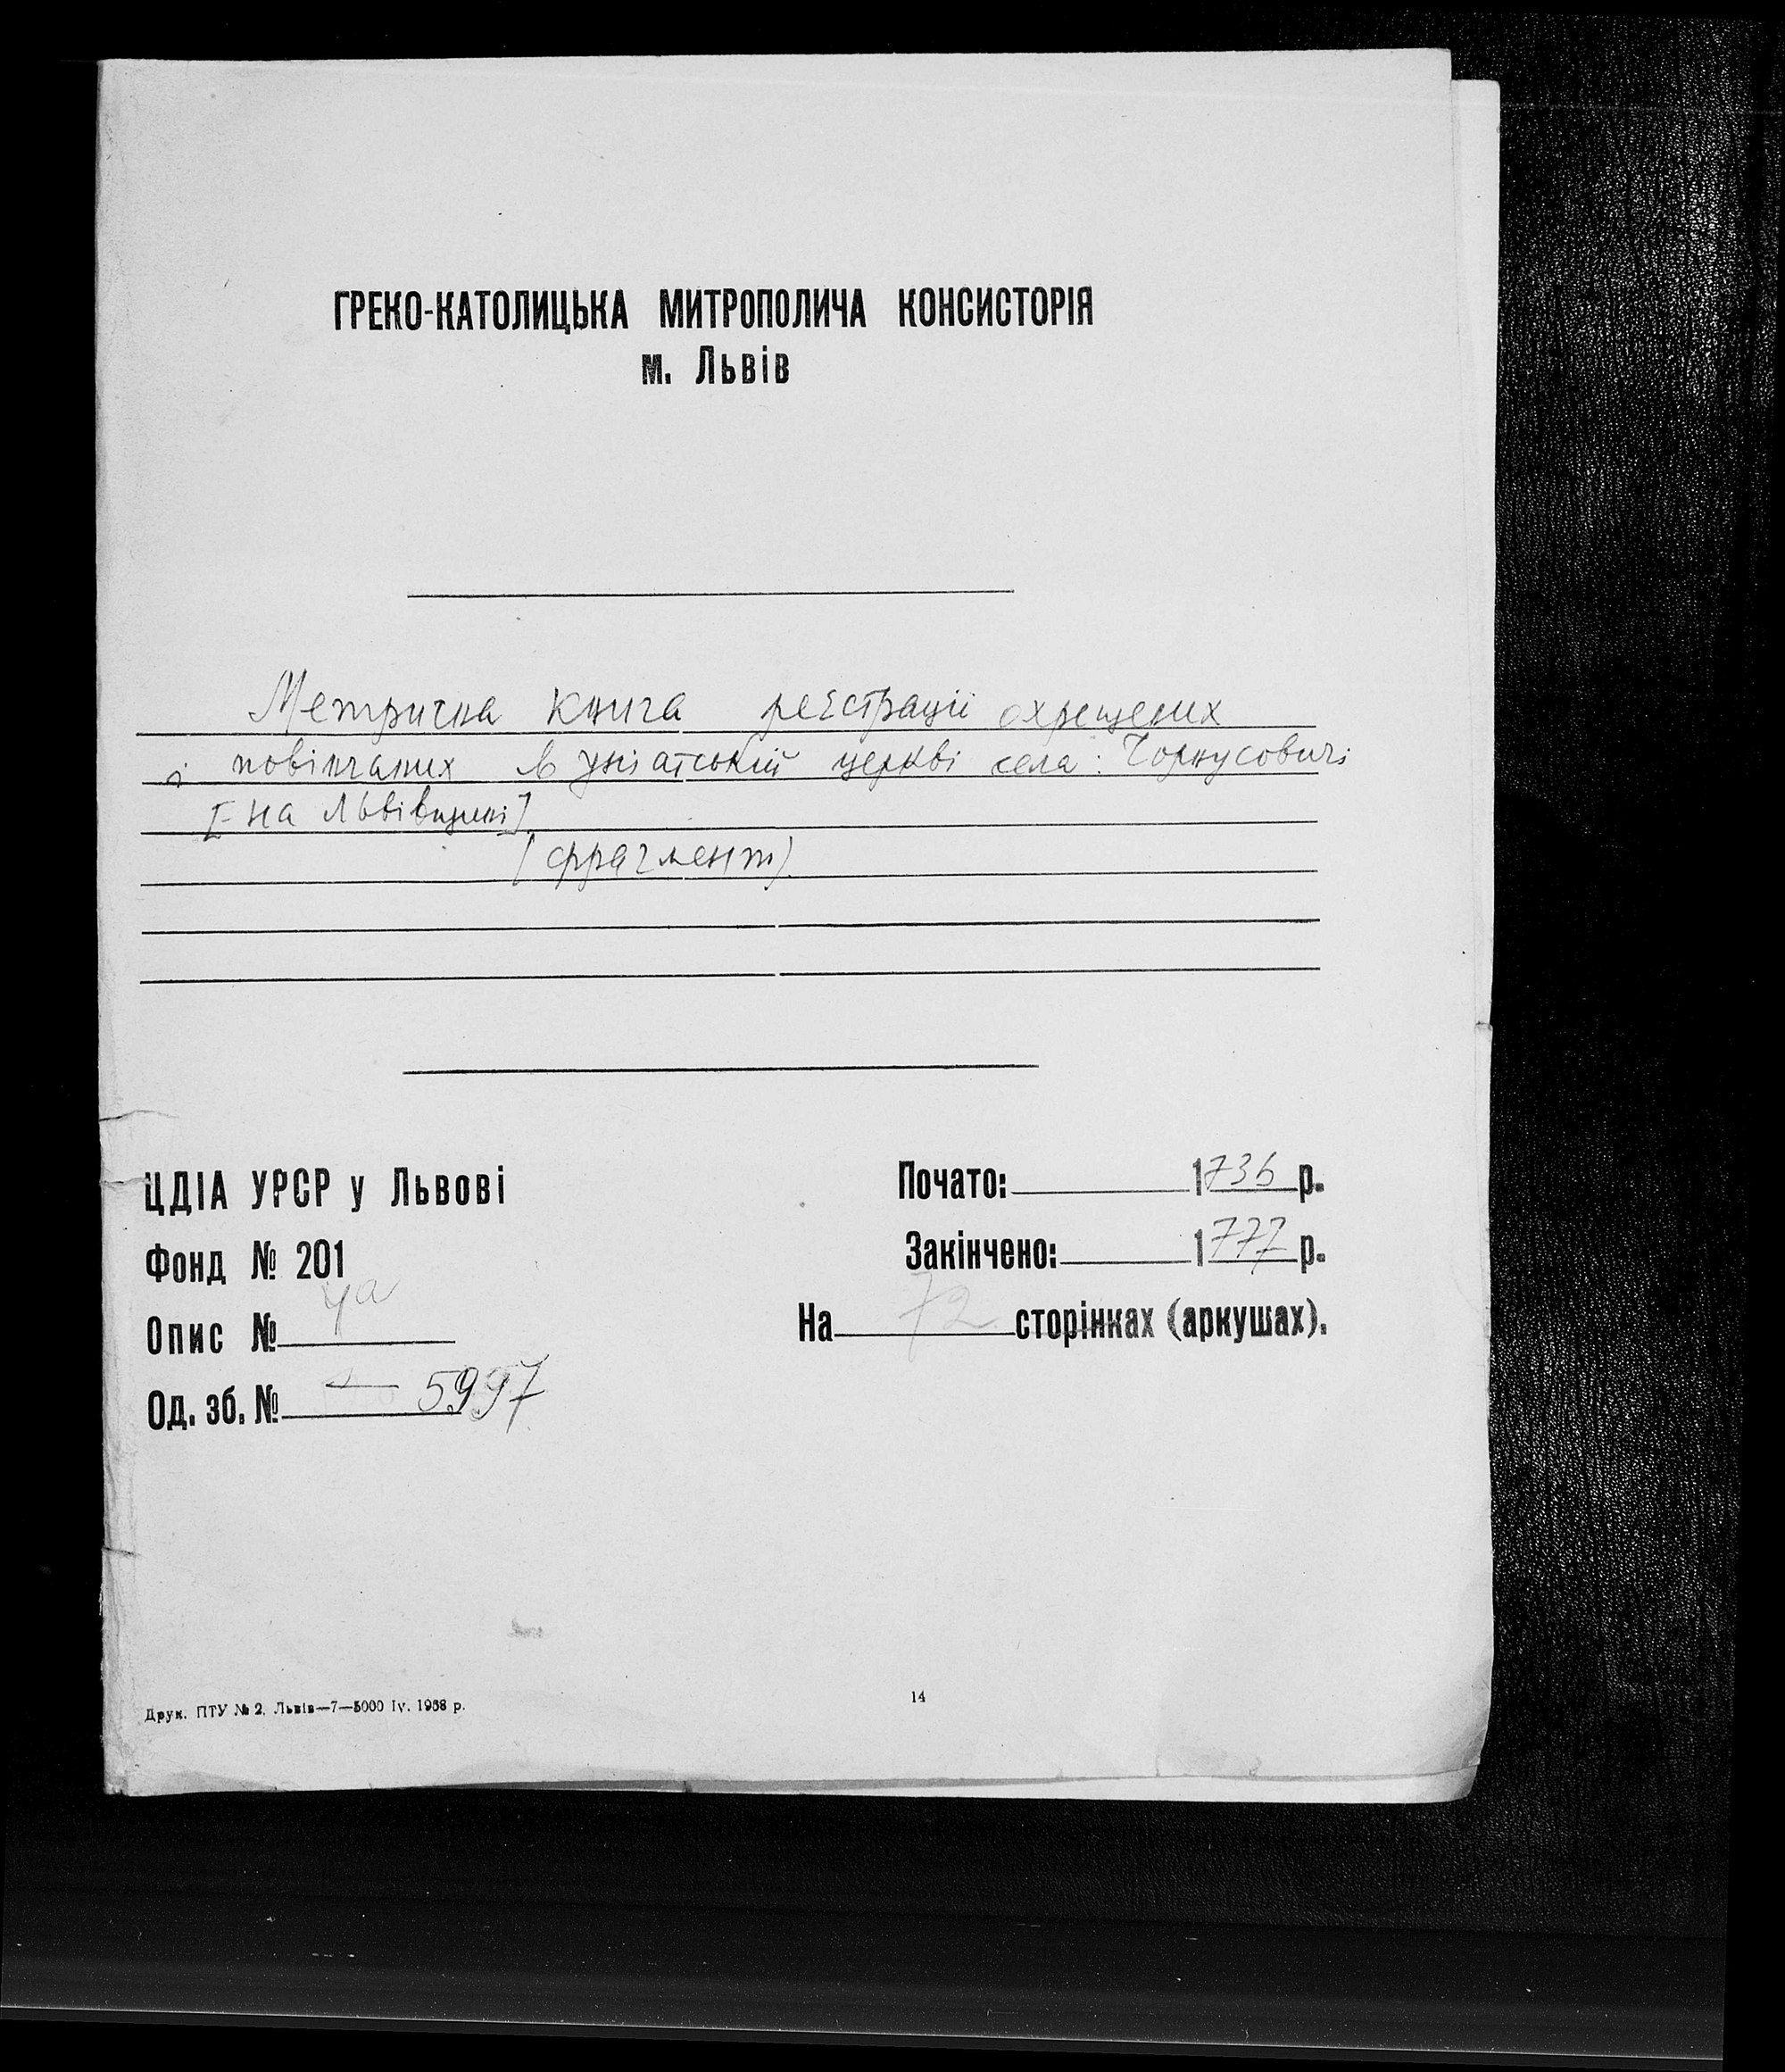 ГРЕКО-КАТОЛИЦЬКА МИТРОПОЛИЧА КОНСИСТОРІЯ
м. Львів
Метрична книга реєстрації охрещених
і повінчаних в уніатській церкві села: Чорнусовичі
[на Львівщині]
(фрагмент)
ЦДІА УРСР у Львові
Фонд № 201
Опис № 4а
Од. зб. № 5997
Почато: 1736 р.
Закінчено: 1777 р.
На 72 сторінках (аркушах).
Друк. ПТУ № 2, Львів—7—5000 IV. 1968 р.
14